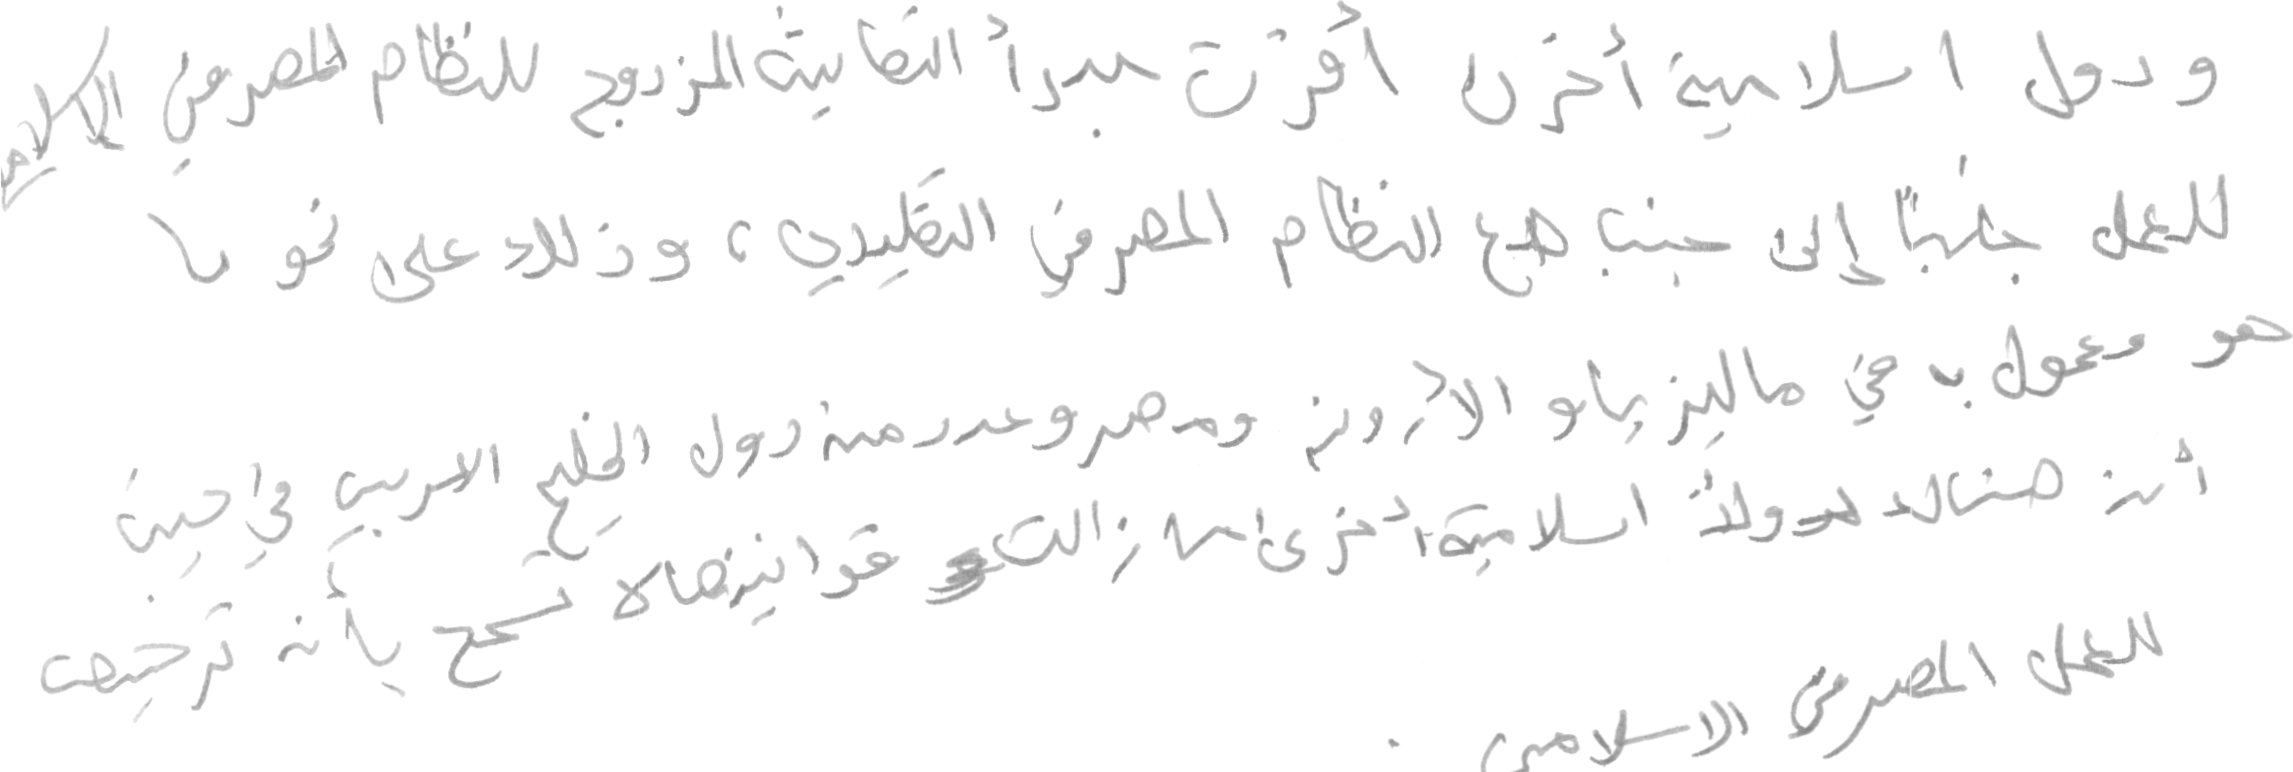 ودول اسلامية أخرى أقرت مبدأ الثنائية المزدوج للنظام المصرفي الاسلامي
للعمل جنبًا إلى جنب مع النظام المصرفي التقليدي، وذلك على نحو ما
هو معمول به في ماليزيا و الأردن ومصر وعدد من دول الخليج العربي في حين
أن هناك دولاً اسلامية أخرى ما زالت قوانينها لا تسمح بأن ترخيص
للعمل المصرفي الاسلامي .